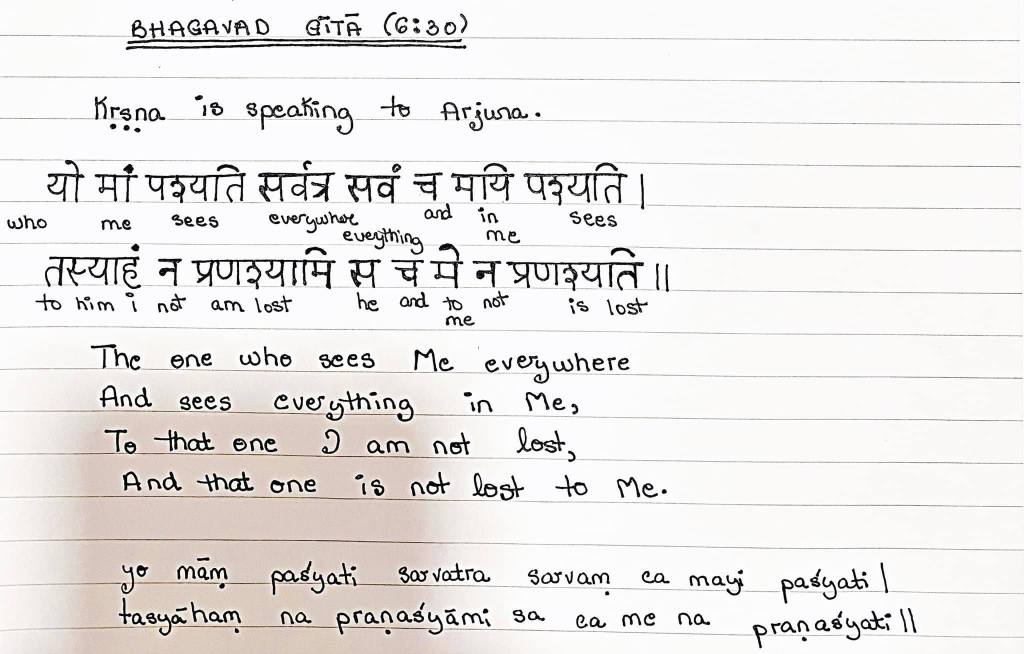 BHAGAVAD GĪTĀ (6:30)
Kṛṣṇa is speaking to Arjuna.
यो मां पश्यति सर्वत्र सर्वं च मयि पश्यति |
who me sees everywhere and in sees
eveything me
तस्याहं न प्रणश्यामि स च मे न प्रणश्यति ||
to him i not am lost he and to not is lost
me
The one who sees Me everywhere
And sees everything in Me,
To that one I am not lost,
And that one is not lost to Me.
yo māṃ paśyati sarvatra sarvaṃ ca mayi paśyati |
tasyāhaṃ na praṇaśyāmi sa ca me na praṇaśyati ||